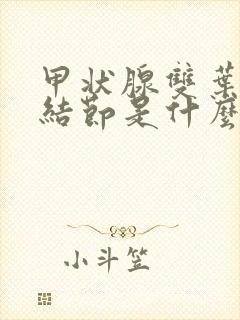 甲狀腺雙葉
結節是什麼
小斗笠